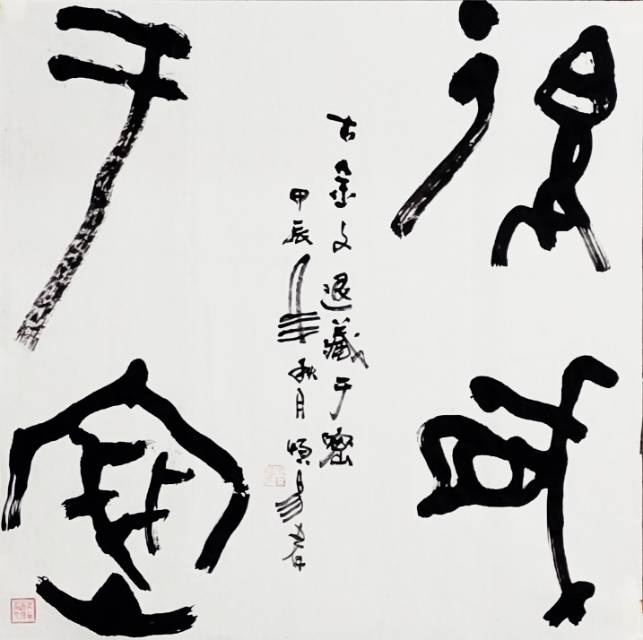 退藏
于密
古金文退藏于密
甲辰年秋月